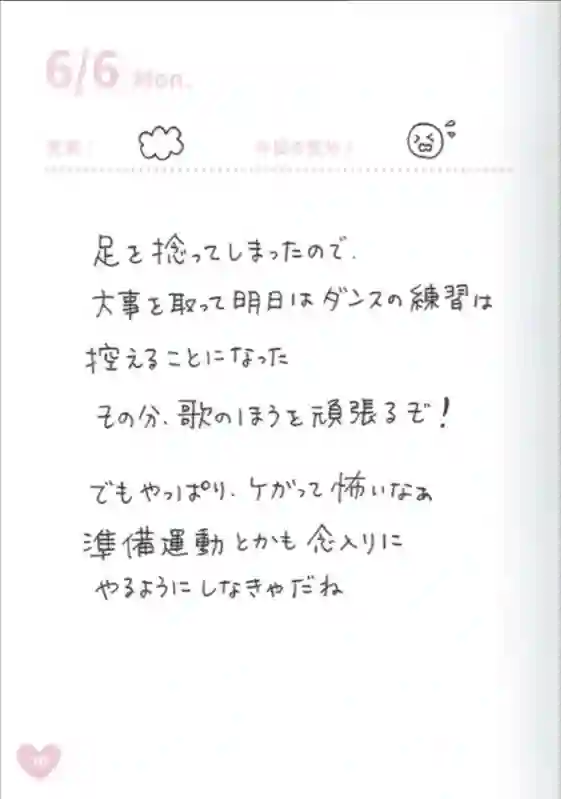 6/6 Mon.
足を捻ってしまったので、
大事を取って明日はダンスの練習は
控えることになった
その分、歌のほうを頑張るぞ!
でもやっぱり、ケガって怖いなぁ
準備運動とかも念入りに
やるようにしなきゃだね